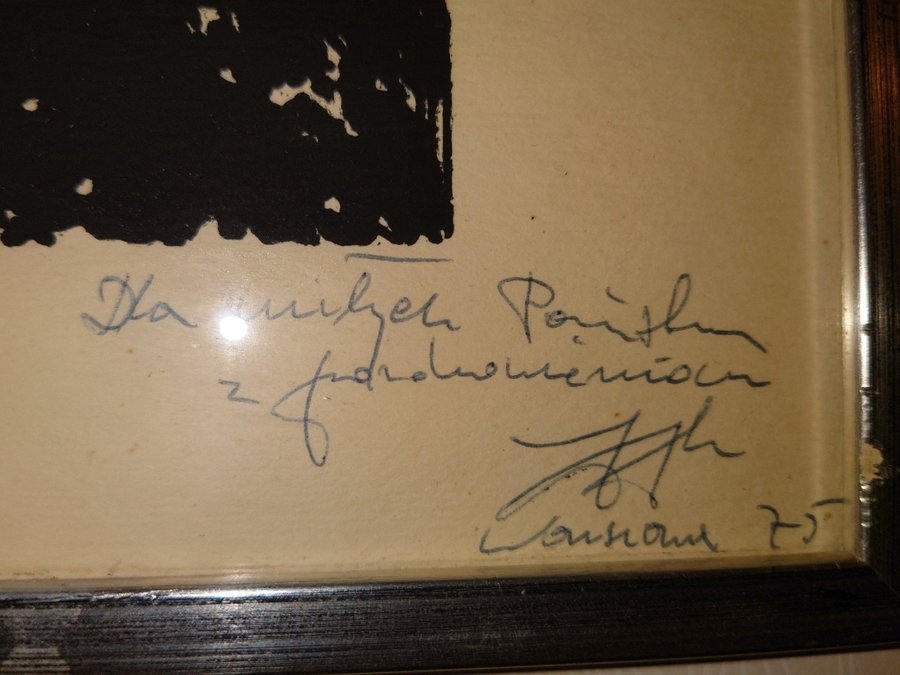 Dla miłych Państwa
z pozdrowieniami
Warszawa 75